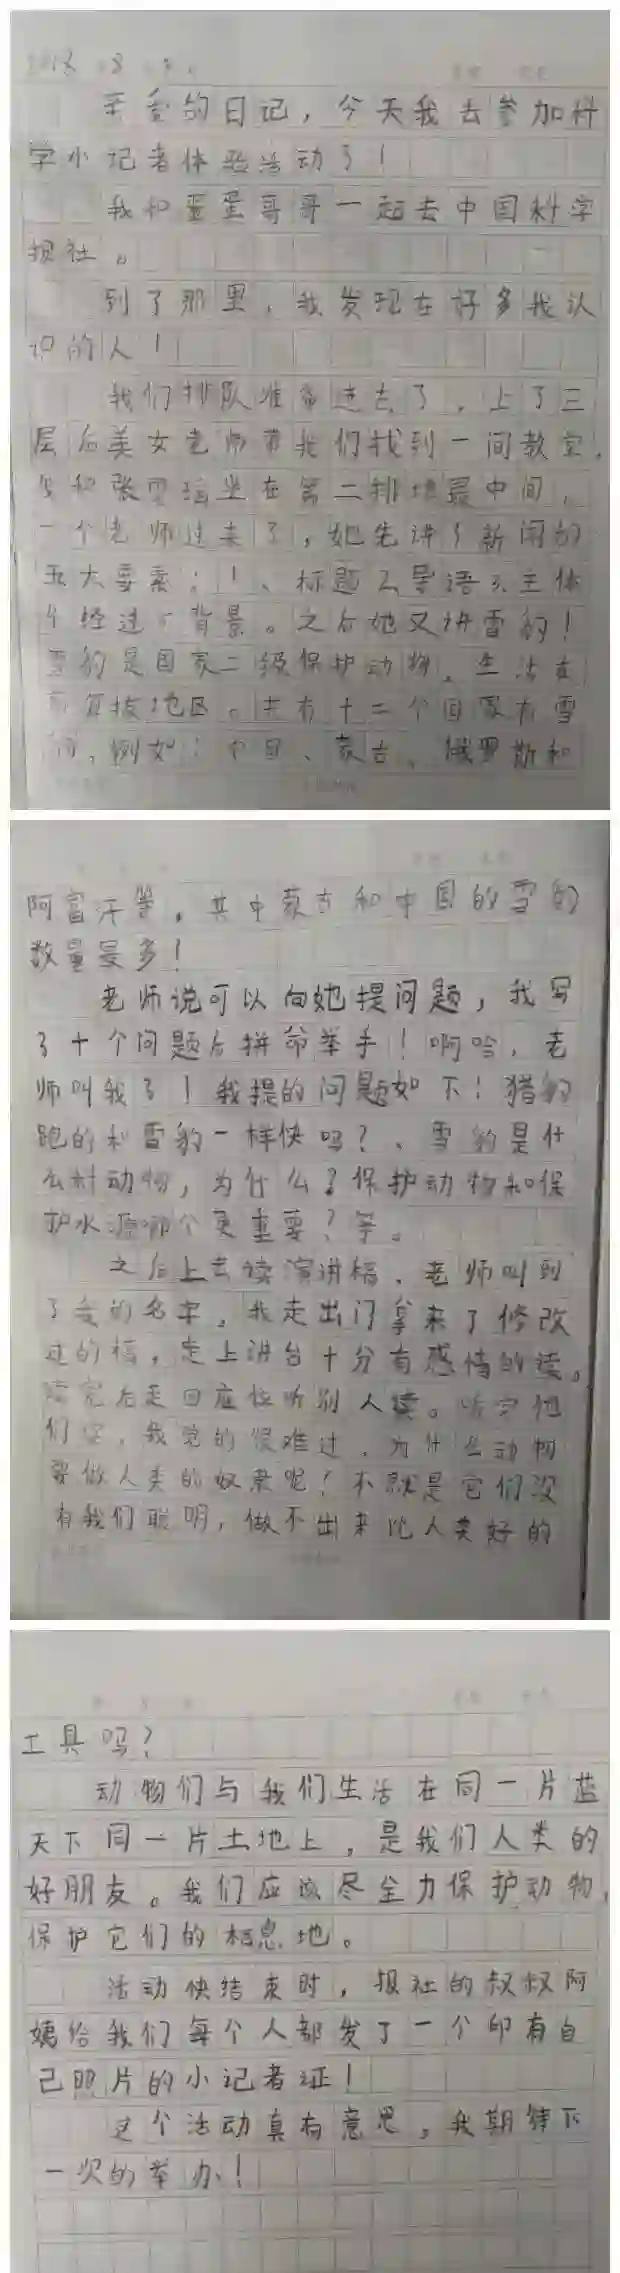 亲爱的日记，今天我去参加科
学小记者体验活动了！
我和蛋蛋哥哥一起去中国科学
报社。
到了那里，我发现在好多我认
识的人！
我们排队准备进去了，上了三
层后美女老师带我们找到一间教室，
和张雪 坐在第二排地最中间，
一个老师过来了，她先讲了新闻的
五大要素：1、标题2导语3主体
4经过5背景。之后她又讲雪豹！
雪豹是国家二级保护动物，生活在
高海拔地区。共有十二个国家有雪
豹，例如：中国、蒙古、俄罗斯和
阿富汗等，其中蒙古和中国的雪豹
数量最多！
老师说可以向她提问题，我写
了十个问题后拼命举手！啊哈，老
师叫我了！我提的问题如下！猎豹
跑的和雪豹一样快吗？、雪豹是什
么科动物，为什么？保护动物和保
护水源哪个更重要？等。
之后上去读演讲稿，老师叫到
了我的名字，我走出门拿来了修改
过的稿，走上讲台十分有感情的读。
读完后走回座位听别人读。听完他
们读，我觉的很难过，为什么动物
要做人类的奴隶呢！不就是它们没
有我们聪明，做不出来比人类好的
工具吗？
动物们与我们生活在同一片蓝
天下同一片土地上，是我们人类的
好朋友。我们应该尽全力保护动物，
保护它们的栖息地。
活动快结束时，报社的叔叔阿
姨给我们每个人都发了一个印有自
己照片的小记者证！
这个活动真有意思，我期待下
一次的举办！